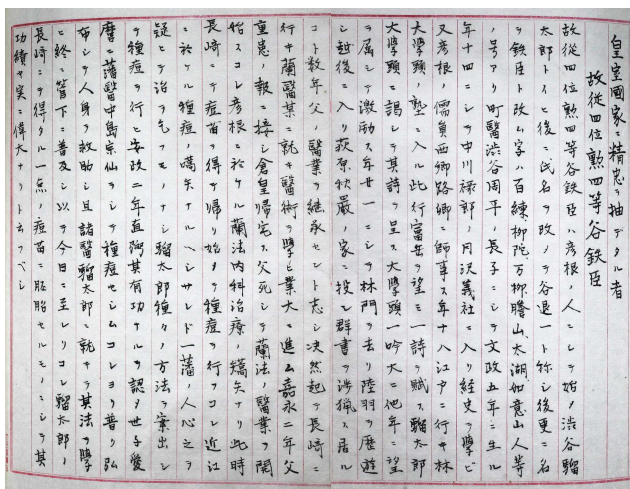 皇室國家ニ精忠ヲ抽デタル者
故從四位勲四等谷鉄臣
故從四位勲四等谷鉄臣ハ彦根ノ人ニシテ始メ渋谷騮
太郎トイヒ後ニ氏名ヲ改メ谷退一ト称シ後更ニ名
ヲ鉄臣ト改ム字ハ百練柳陀万柳謄山太湖如意山人等
ノ号アリ町醫渋谷周平ノ長子ニシテ文政五年ニ生ル
年十四ニシテ中川禄郎ノ月沢義社ニ入リ経史ヲ學ビ
又彦根ノ儒員西郷路卿ニ師事ス年十八江戸ニ行キ林
大學頭ノ塾ニ入ル此行富岳ヲ望ミ一詩ヲ賦ス騮太郎
大學頭ニ謁シテ其詩ヲ呈ス大學頭一吟大ニ他年ニ望
ヲ属シテ激励ス年廿一ニシテ林門ヲ去リ陸羽ヲ歴遊
シ越後ニ入リ荻原秋巌ノ家ニ投ジ群書ヲ渉猟ス居ル
コト数年父ノ醫業ヲ継承セント志シ决然起テ長崎ニ
行キ蘭醫某ニ就キ醫術ヲ學ビ業大ニ進ム嘉永二年父
重患ノ報ニ接シ倉皇帰宅ス父死シテ蘭法ノ醫業ヲ開
始スコレ彦根ニ於ケル蘭法内科治療ノ嚆矢ナリ此時
長崎ニテ痘苗ヲ得テ帰リ始メテ種痘ヲ行フコレ近江
ニ於ケル種痘ノ嚆矢ナルベシサレド一藩ノ人心之ヲ
疑ヒテ治ヲ乞フモノナシ騮太郎種々ノ方法ヲ案出シ
テ種痘ヲ行ヒ安政二年直弼其有功ナルヲ認メ世子愛
麿ニ藩醫中島宗仙ヲシテ種痘セシムコレヨリ普ク弘
布シテ人身ヲ救助シ且諸醫騮太郎ニ就キテ其法ヲ學
ビ終ニ管下ニ普及シ以テ今日ニ至レリコレ騮太郎ノ
長崎ニテ得タル一点ノ痘苗ニ胚胎セルモノニシテ其
功績ヤ実ニ偉大ナリト云フベシ